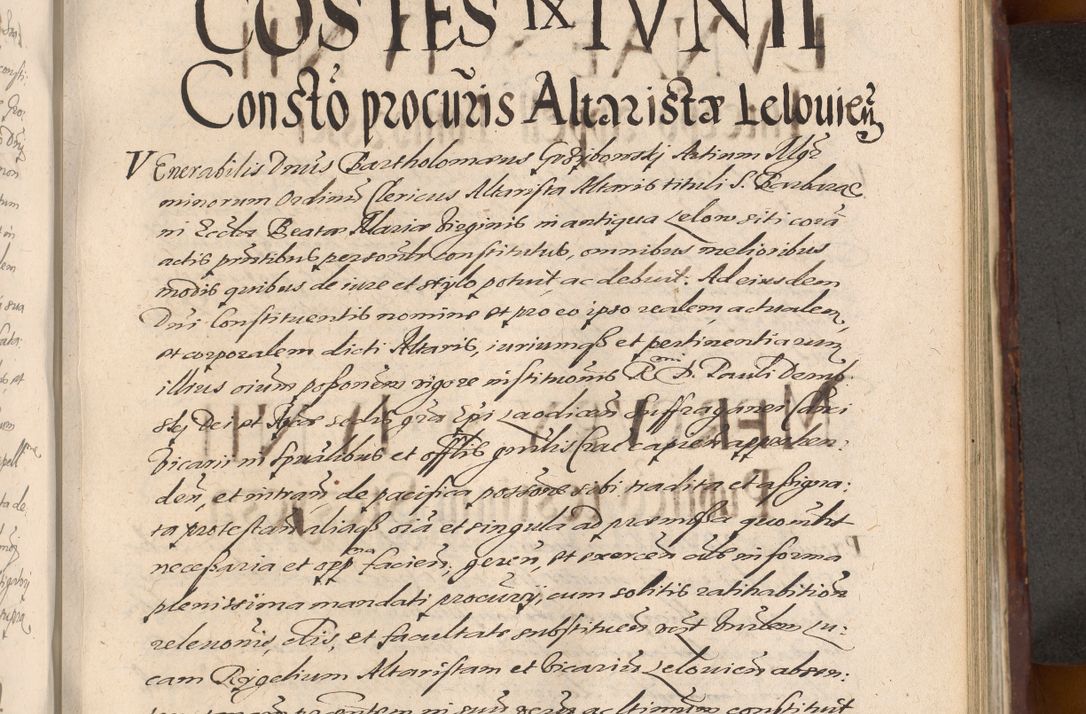 COSTES IX IVNII
Consto procuris Altaristæ Leloviem
VEnerabilis Dnus Bartholomæus Artium Mgr
minorum Ordinu Clericus Altarista Altaris tituli S. Barbaræ
in Ecclia Beatæ Mariæ Virginis in antiqua Lelow siti corā
actis pntibus personlr constitutus, omnibus melioribus
modis quibus de iure et stylo potuit, ac debuit. Ad eiusdem
Dni Constituentis nomine et pro eo ipso realem, actualem,
et corporalem dicti Altaris, iuriumqß et pertinentiarum
illius oium possonem vigore institutionis R. D. Pauli Demb
skj Dei et Aplicæ sedis gra Epi Laodicen Suffraganei Canci
Vicarii in spualibus et offlis gnralis Crac capien apprehen:
den, et intran, de pacifica possone sibi tradita et assigna:
ta protestan aliaqß oia et singula ad præmissa quomlt
necessaria et opp na facien, geren, et exercen in forma
plenissima mandati procurij, cum solitis ratihabitione
relevonis, et facultate substituen
cam Rigelium Altaristam et Vicariu Leloviem absen:
tem tanquam præsentem in suu verum ac ltimum constituit